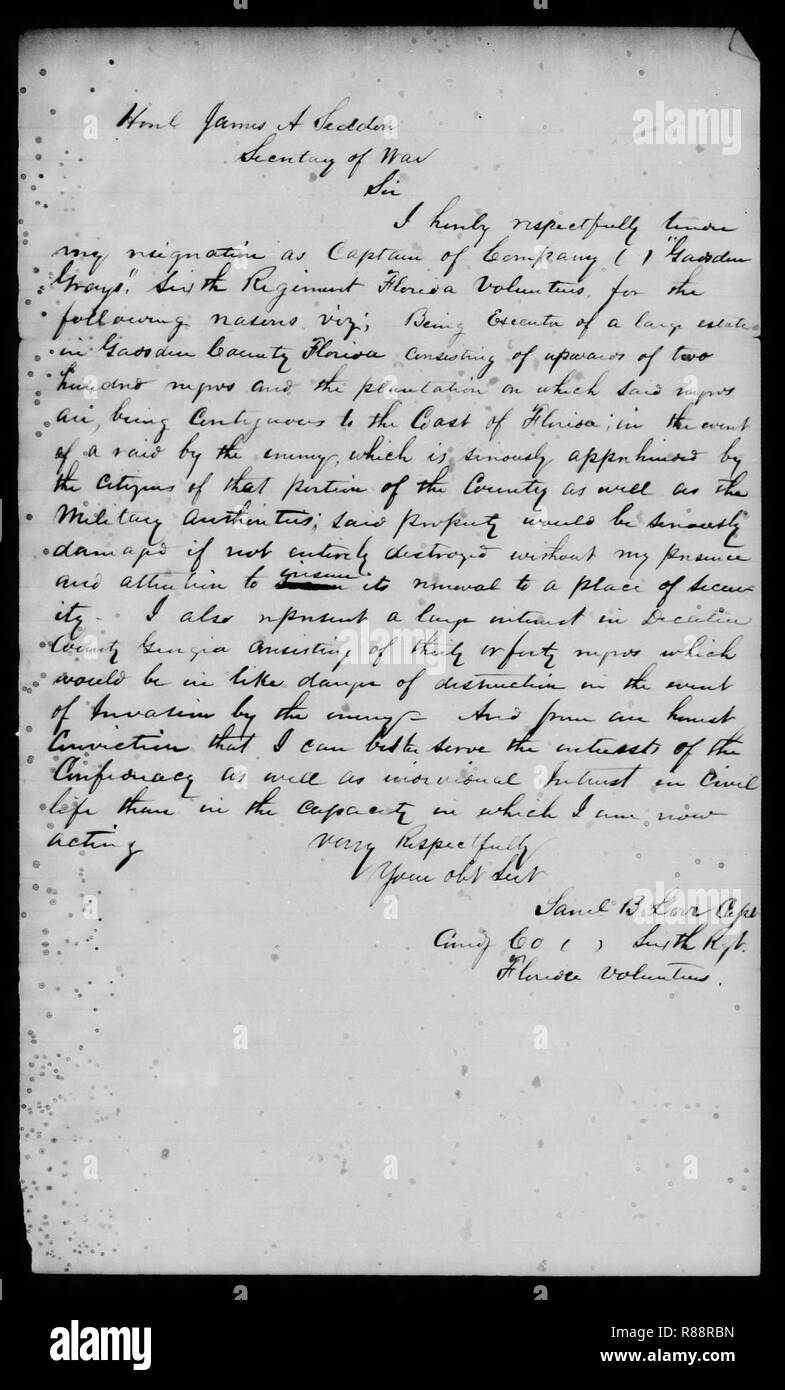 Honl James A Seddon
Secretary of War
Sir
I hereby respectfully tender
my resignation as Captain of Company ( ) "Gadsden
Grays", Sixth Regiment Florida Volunteers, for the
following reasons viz; Being Executor of a large estate
in Gadsden County Florida consisting of upwards of two
hundred negros and the plantation on which said negros
are, being contiguous to the Coast of Florida; in the event
of a raid by the enemy, which is seriously apprehended by
the citizens of that portion of the County as well as the
Military Authorities; said property would be seriously
damaged if not entirely destroyed without my presence
and attention to insure its removal to a place of secur
ity - I also represent a large interest in Decatur
County Georgia consisting of thirty or forty negros which
would be in like danger of destruction in the event
of Invasion by the enemy - And from an honest
Conviction that I can better serve the interests of the
Confederacy as well as individual Interest in Civil
life than in the capacity in which I am now
acting Very Respectfully
Your obt Sevt
Saml B Love Capt
Comdg Co ( ) Sixth Regt.
Florida Volunteers.
alamy
alamy
alamy
a
alamy
Image ID: R88RBN
www.alamy.com